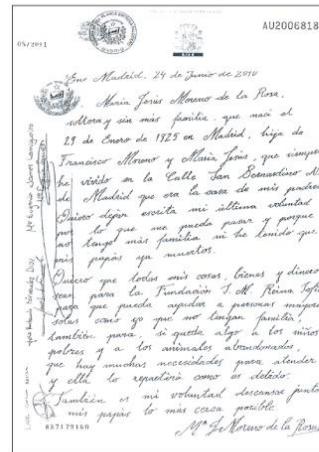 AU2006818
05/2011
En Madrid, 24 de Junio de 2010
María Jesús Moreno de la Rosa,
soltera y sin más familia, que nací el
29 de Enero de 1925 en Madrid, hija de
Francisco Moreno y María Jesús, que siempre
he vivido en la Calle San Bernardino
de Madrid que era la casa de mis padres
Quiero dejar escrita mi última voluntad
por lo que me pueda pasar y porque
no tengo más familia ni he tenido que
mis papás ya muertos.
Quiero que todas mis cosas, bienes y dinero
sean para la Fundación S. M. Reina Sofía
para que pueda ayudar a personas mayores
solas como yo que no tengan familia,
también para, si queda algo a los niños
pobres y a los animales abandonados,
que hay muchas necesidades para atender
y ella lo repartirá como es debido.
También es mi voluntad descansar junto
mis papás lo más cerca posible.
Mª J. Moreno de la Rosa